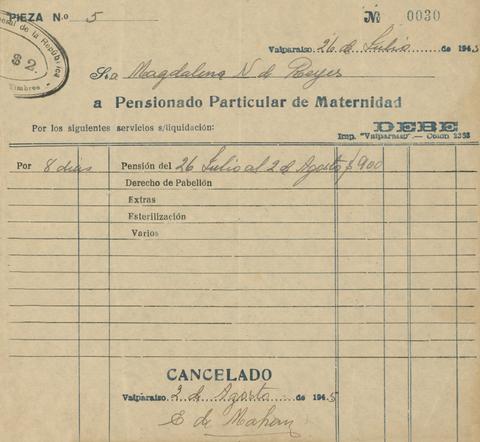 PIEZA N.o 5
No 0030
eral de la República
$ 2.
Timbres
Valparaíso, 26 de Julio de 1945
Sra Magdalena N de Reyes
a Pensionado Particular de Maternidad
Por los siguientes servicios s/liquidación:
DEBE
Imp. "Valparaíso".— Colón 2353
Por 8 dias Pensión del 26 Julio al 2 de Agosto $ 900
Derecho de Pabellón
Extras
Esterilización
Varios
CANCELADO
Valparaíso, 2 de Agosto de 1945
E de